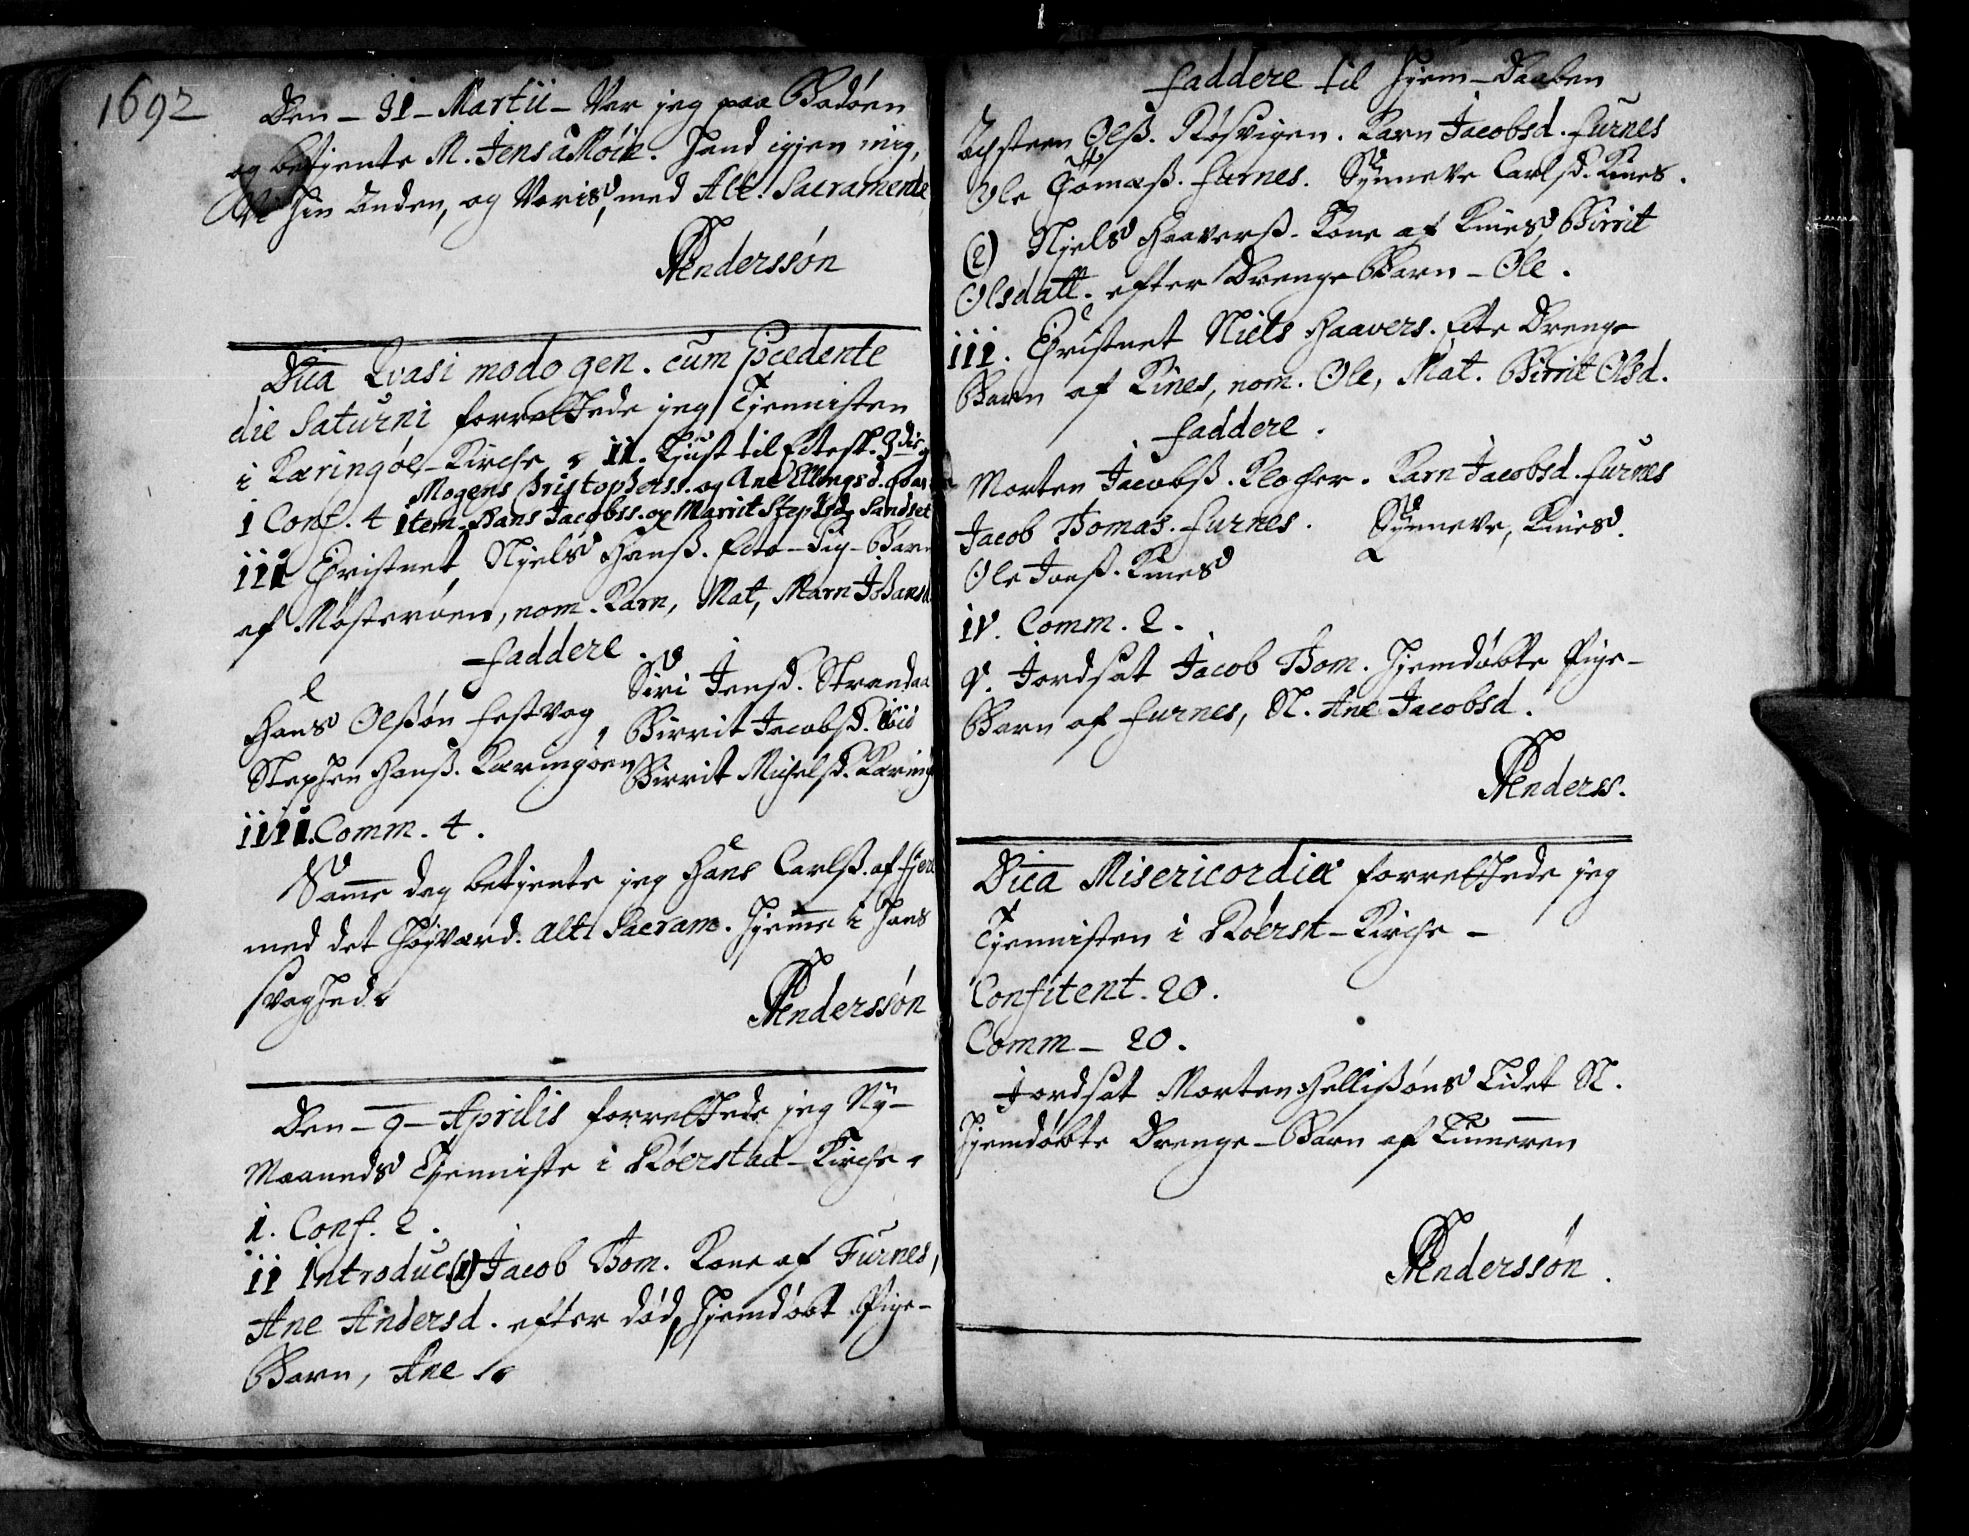 1692
Den - 31 - Martii - Var jeg paa Bodöen
og betiente M. Jens a Möin. Hand igjen mig,
Vi hin anden, og Voris, med Alt. Sacramente
Anderssón
Dica Qvasi modo gen. cum Pcedente
die Saturni forrettede jeg Tjennisten
i Kæringøe-Kirche
ii. Liust til Ectesk. 3die g
Mogens Christophers. og Ane Ellingsd.
i Conf. 4 item Hans Jacobss. og Marrit Stephsd. Sandset
iii Christnet Njels Hanß. Ecte-Pig-Barn
af Mösteröen, nom. Karn, Mat, Marn Johansd
Faddere.
Hans Olßön Festvog
Siri Jensd. Strandaa
Birrit Jacobsd. ibid
Stephen Hanß. Kæringöen
Birrit Michelsd. Kæring
iiii. Comm. 4.
Samme dag betjente jeg Hans Carlß. af Fjere
med det Höjværd. Alt. Sacram. hjemme i hans
svaghed.
Anderssón
Den - 9 - Aprilis forrettede jeg Ny-
Maaneds Tjenniste i Röerstad-Kirche.
i. Conf. 2.
ii Introduc. (1) Jacob Thom. Kone af Furnes,
Ane Andersd. efter död, hjemdöbt Pige-
Barn, Ane
Faddere til Hjem-Daaben
Achsteen Olß. Rösvigen. Karn Jacobsd. Furnes
Ole Thomæß. Furnes. Synneve Carlsd. Kines.
(2) Njels Haaverß. Kone af Kines, Birrit
Olsdatt. efter Drenge Barn - Ole.
iii. Christnet Niels Haavers. Ecte Drenge
Barn af Kines, nom. Ole, Mat. Birrit Olsd.
Faddere.
Morten Jacobß. Klocher. Karn Jacobsd. Furnes
Jacob Thomas. Furnes. Synneve, Kines.
Ole Jonß. Kines
iv. Comm. 2.
v. Jordsat Jacob Thom. Hjemdöbte Pige-
Barn af Furnes, N. Ane Jacobsd.
Anderss.
Dica Misericordiæ forrettede jeg
Tjennisten i Röerst-Kirche -
Confitent. 20.
Comm - 20.
Jordsat Morten Hellißöns Lidet N.
Hjemdöbte Drenge-Barn af Tümeren
Anderssón.